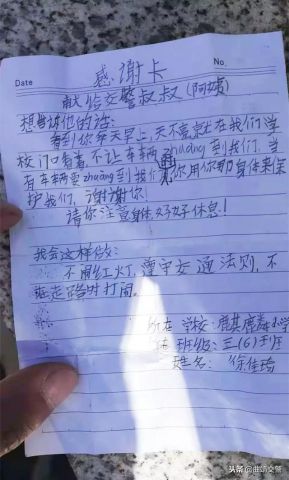 感谢卡
Date
No.
献给交警叔叔(阿姨)
想对他的话:
看到你每天早上,天不亮就在我们学
校门口看着,不让车辆zhuàng到我们,当
有车辆要zhuàng到我们,你用你的身体来保
护我们,谢谢你!
请你注意身体,好好休息!
我会这样做:
不闯红灯,遵守交通法则,不
在走路时打闹。
所在学校:鹿其鹿舞小学
班级:三(6)班
姓名:徐佳琦
头条@曲靖交警